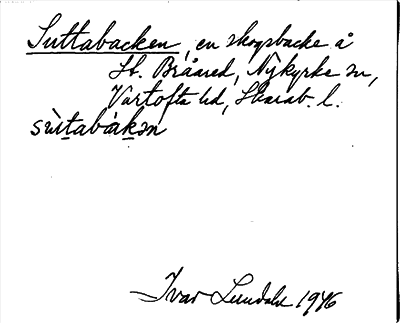 Suttabacken, en skogsbacke å
St. Bråared, Nykyrke sn,
Vartofta hd, Skarab. l.
sùtabàkən
Ivar Lundahl 1946